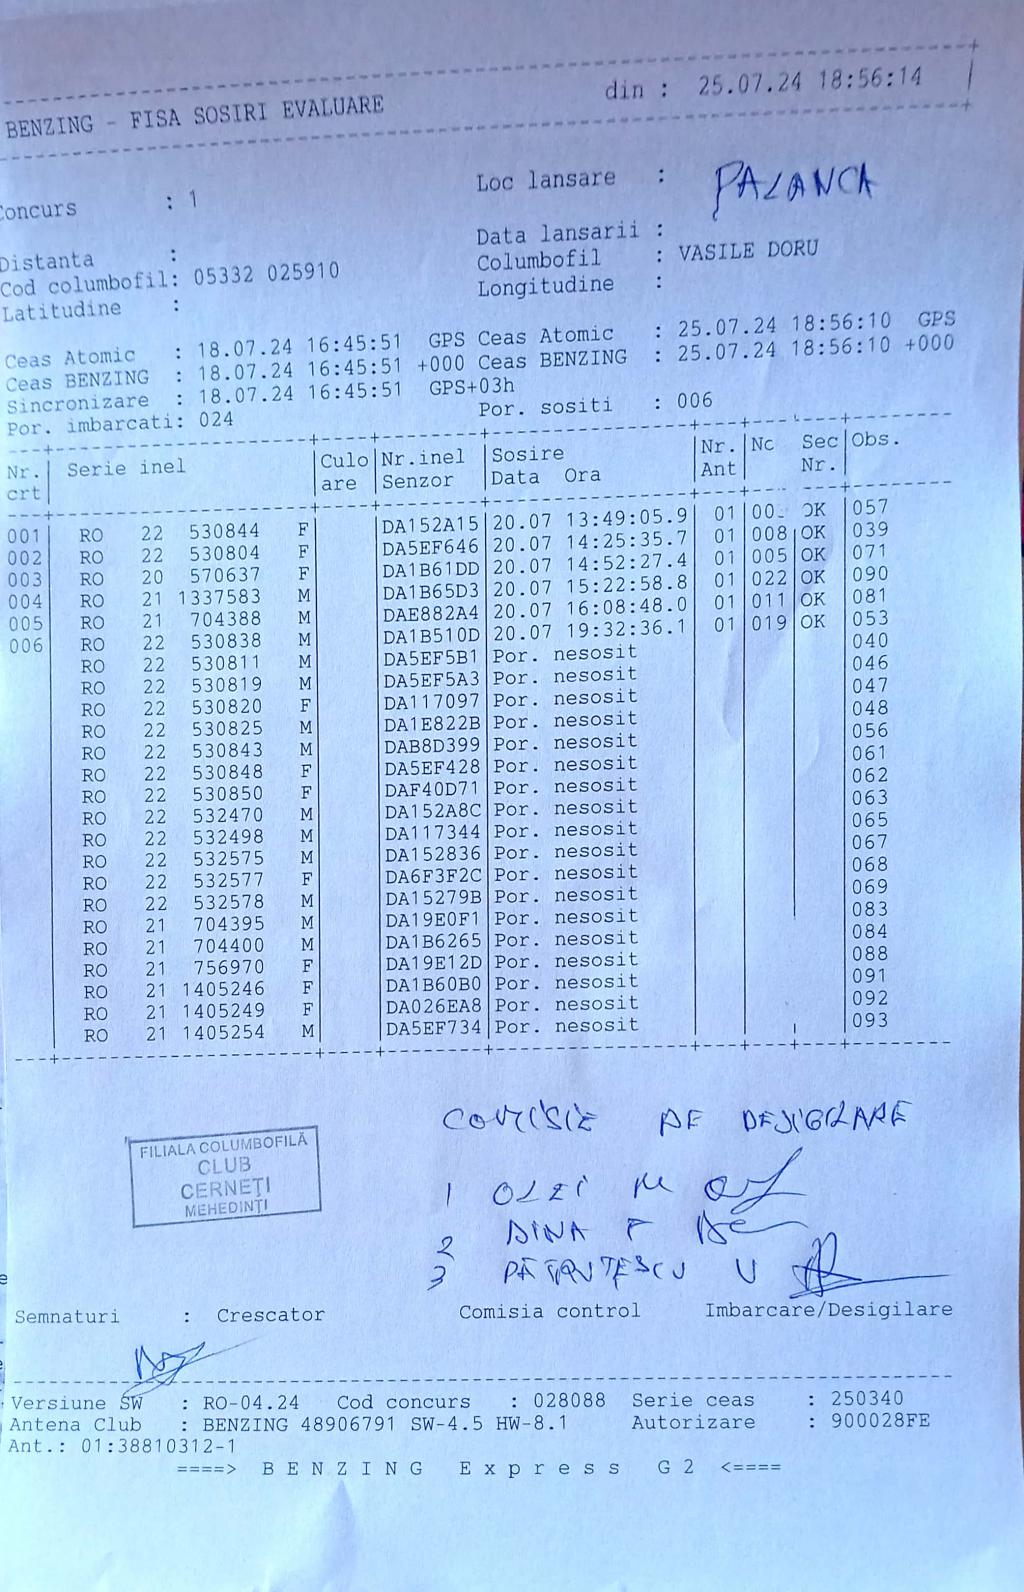 BENZING - FISA SOSIRI EVALUARE din : 25.07.24 18:56:14
Concurs : 1 Loc lansare : PALANCA
Data lansarii :
Distanta : Columbofil : VASILE DORU
Cod columbofil: 05332 025910 Longitudine :
Latitudine :
Ceas Atomic : 18.07.24 16:45:51 GPS Ceas Atomic : 25.07.24 18:56:10 GPS
Ceas BENZING : 18.07.24 16:45:51 +000 Ceas BENZING : 25.07.24 18:56:10 +000
Sincronizare : 18.07.24 16:45:51 GPS+03h
Por. imbarcati: 024 Por. sositi : 006
Nr. Serie inel Culo Nr.inel Sosire Nr. Nc Sec Obs.
crt are Senzor Data Ora Ant Nr.
001 RO 22 530844 F DA152A15 20.07 13:49:05.9 01 OK 057
002 RO 22 530804 F DA5EF646 20.07 14:25:35.7 01 008 OK 039
003 RO 20 570637 F DA1B61DD 20.07 14:52:27.4 01 005 OK 071
004 RO 21 1337583 M DA1B65D3 20.07 15:22:58.8 01 022 OK 090
005 RO 21 704388 M DAE882A4 20.07 16:08:48.0 01 011 OK 081
006 RO 22 530838 M DA1B510D 20.07 19:32:36.1 01 019 OK 053
RO 22 530811 M DA5EF5B1 Por. nesosit 040
RO 22 530819 M DA5EF5A3 Por. nesosit 046
RO 22 530820 F DA117097 Por. nesosit 047
RO 22 530825 M DA1E822B Por. nesosit 048
RO 22 530843 M DAB8D399 Por. nesosit 056
RO 22 530848 F DA5EF428 Por. nesosit 061
RO 22 530850 F DAF40D71 Por. nesosit 062
RO 22 532470 M DA152A8C Por. nesosit 063
RO 22 532498 M DA117344 Por. nesosit 065
RO 22 532575 M DA152836 Por. nesosit 067
RO 22 532577 F DA6F3F2C Por. nesosit 068
RO 22 532578 M DA15279B Por. nesosit 069
RO 21 704395 M DA19E0F1 Por. nesosit 083
RO 21 704400 M DA1B6265 Por. nesosit 084
RO 21 756970 F DA19E12D Por. nesosit 088
RO 21 1405246 F DA1B60B0 Por. nesosit 091
RO 21 1405249 F DA026EA8 Por. nesosit 092
RO 21 1405254 M DA5EF734 Por. nesosit 093
COMISIE DE DESIGILARE
FILIALA COLUMBOFILĂ
CLUB
CERNEȚI
MEHEDINȚI
1 OLEI M
2 DINA F
3 PĂTRUȚESCU V
Semnaturi : Crescator Comisia control Imbarcare/Desigilare
Versiune SW : RO-04.24 Cod concurs : 028088 Serie ceas : 250340
Antena Club : BENZING 48906791 SW-4.5 HW-8.1 Autorizare : 900028FE
Ant.: 01:38810312-1
====> BENZING Express G2 <====